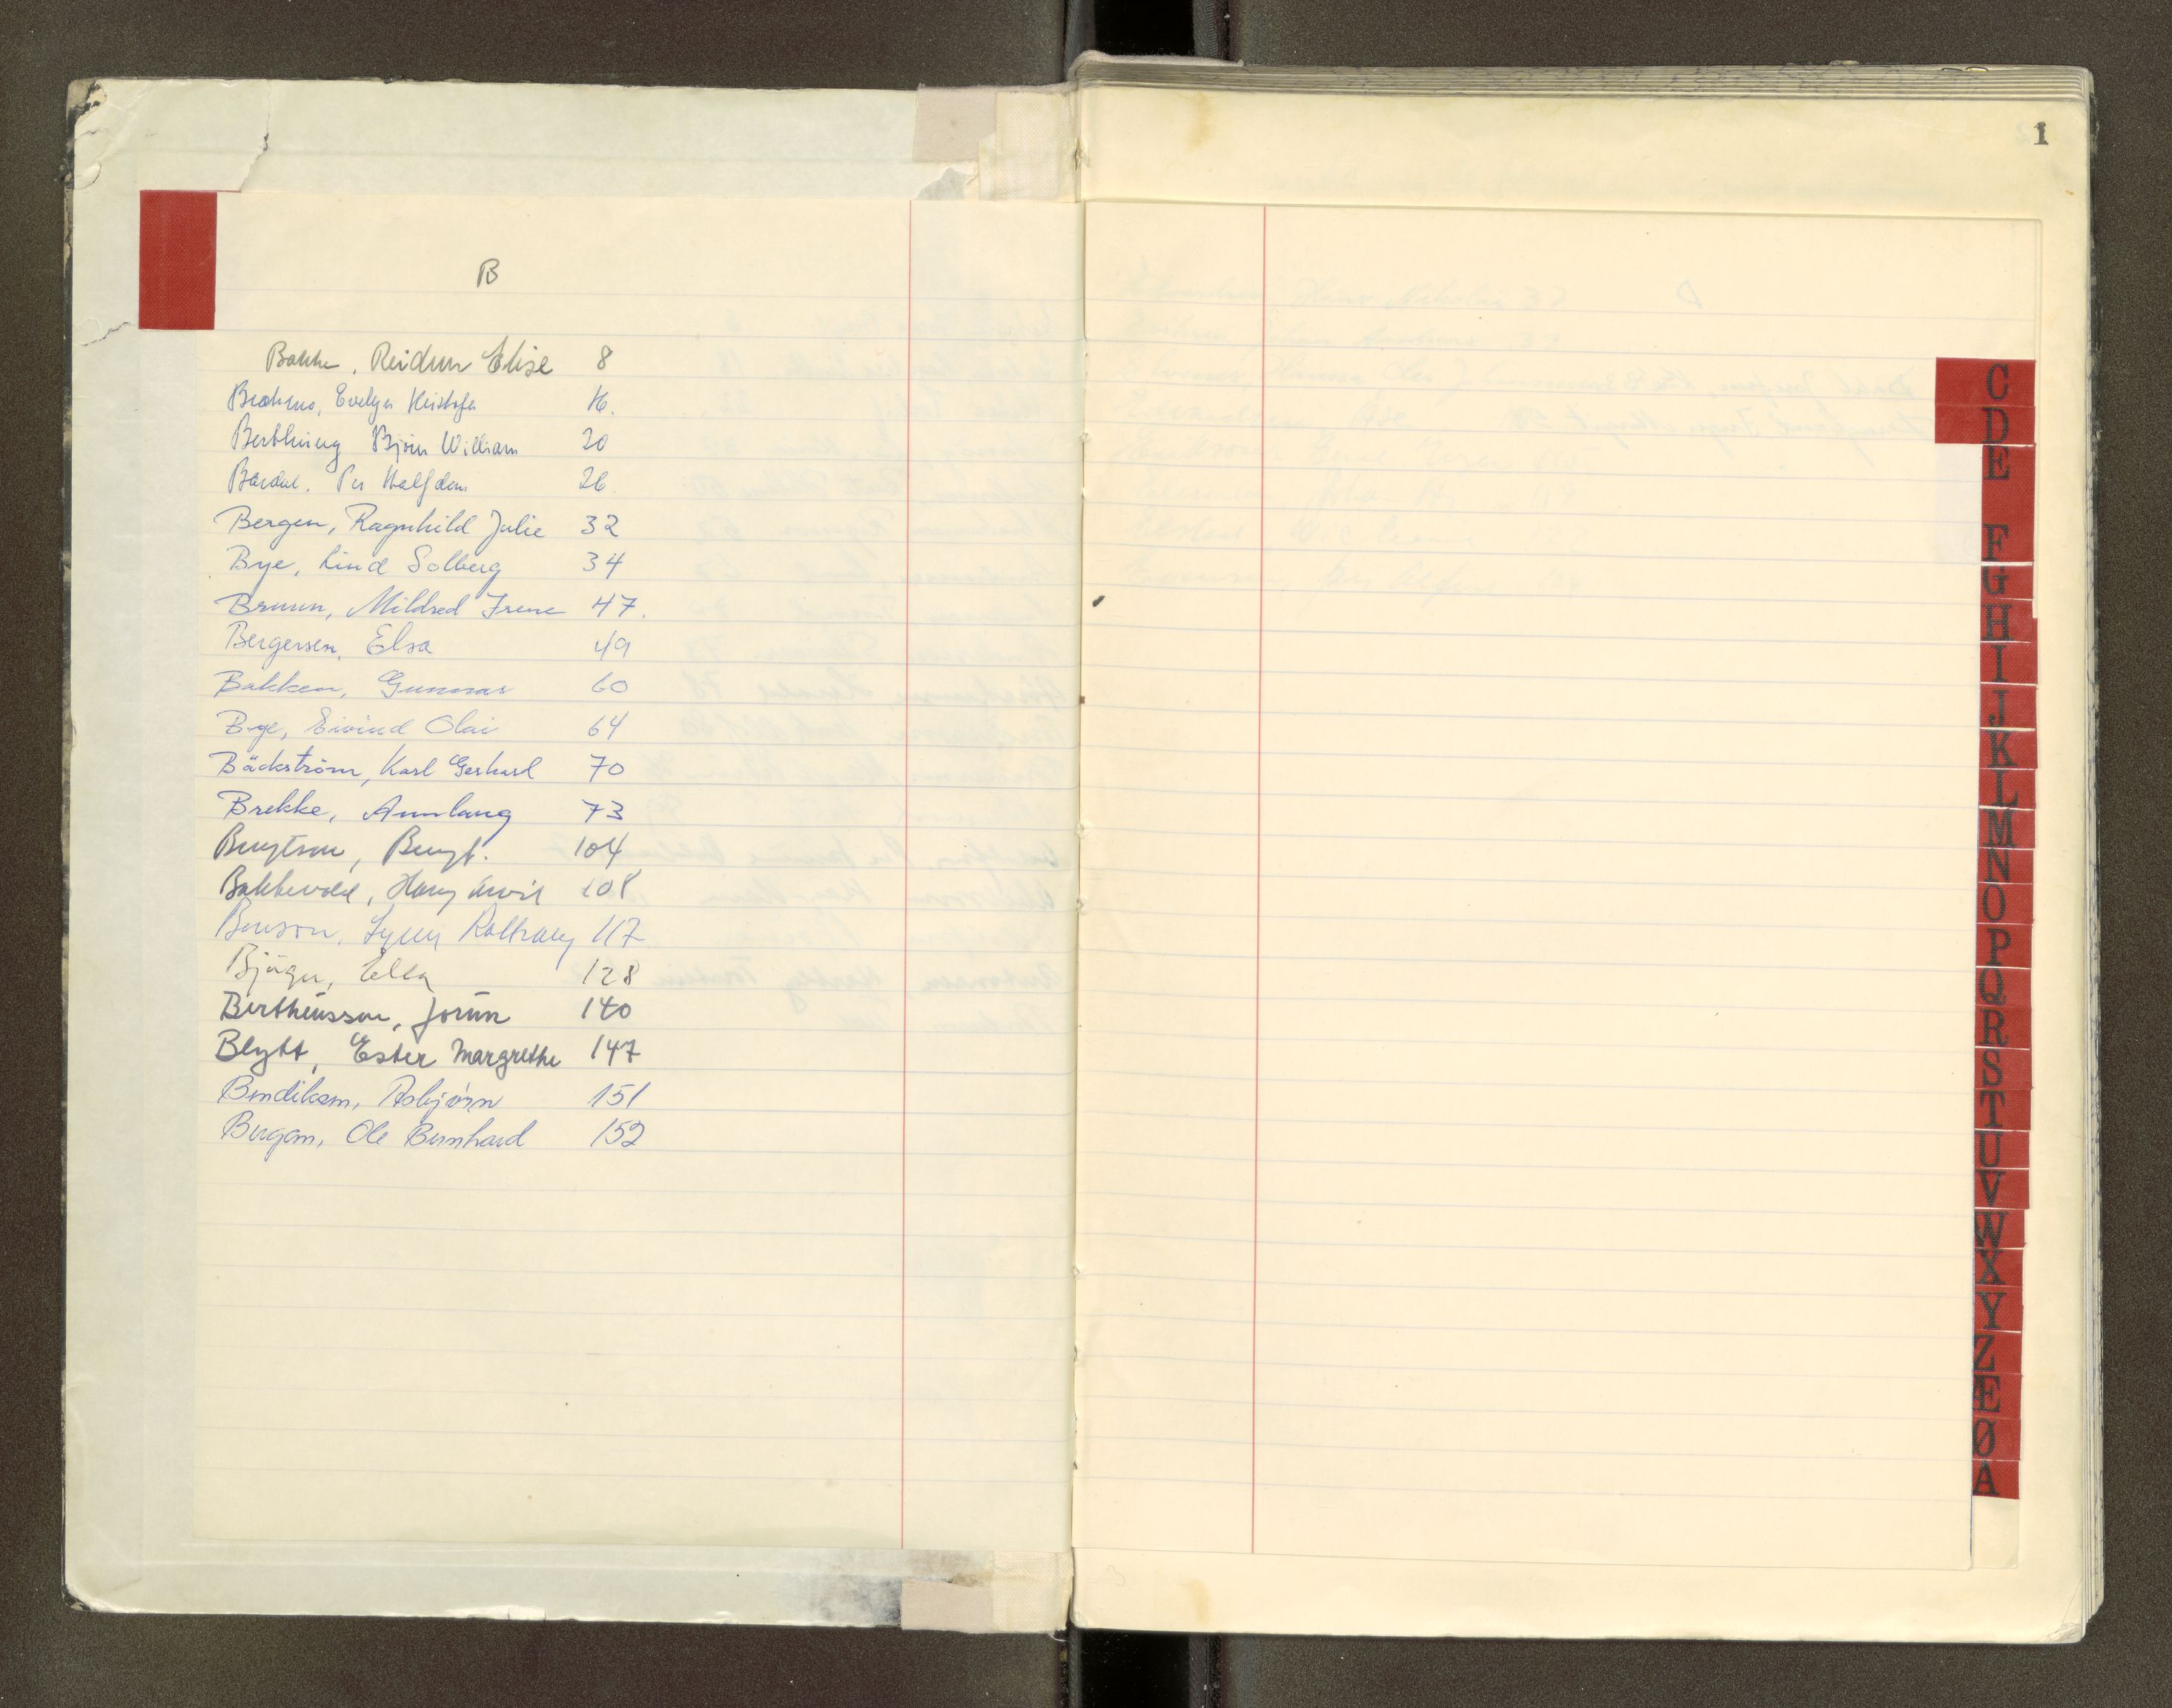 B
Bakke, Reidun Elise 8
Evelyn 16.
Berthung Bjørn William 20
Bårdul. Per Halfdan 26
Bergen, Ragnhild Julie 32
Bye, Lind Solberg 34
Bruun, Mildred Irene 47.
Bergersen, Elsa 49
Bakken, Gunnar 60
Bye, Eivind Olai 64
Bäckström, Karl Gerhard 70
Brekke, Annlaug 73
Bengtson, Bengt. 104
Bakkevold, Harry Arvid 108
Benson, Lynn 117
Ella 128
Bertheussen, Jorun 140
Blytt, Ester Margrethe 147
Bendiksen, Asbjørn 151
Bergan, Ole Bernhard 152
1
C
D
E
F
G
H
I
J
K
L
M
N
O
P
Q
R
S
T
U
V
W
X
Y
Z
Æ
Ø
A